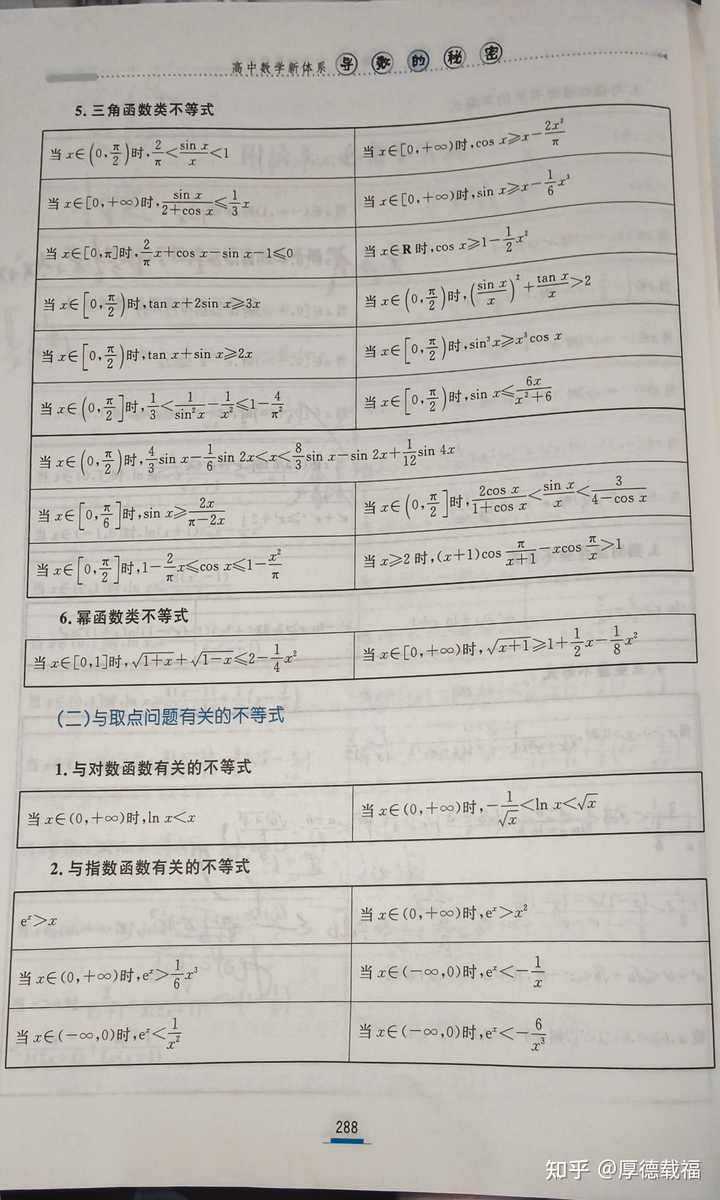 高中数学新体系 导数的秘密
5. 三角函数类不等式
当 x∈(0, π/2)时, 2/π < sin x/x < 1
当 x∈[0,+∞)时, cos x ⩾ x − 2x²/π
当 x∈[0,+∞)时, sin x/(2+cos x) ⩽ 1/3 x
当 x∈[0,+∞)时, sin x ⩾ x − 1/6 x³
当 x∈[0,π]时, 2/π x + cos x − sin x − 1 ⩽ 0
当 x∈R 时, cos x ⩾ 1 − 1/2 x²
当 x∈[0, π/2)时, tan x + 2sin x ⩾ 3x
当 x∈(0, π/2)时, (sin x/x)² + tan x/x > 2
当 x∈[0, π/2)时, tan x + sin x ⩾ 2x
当 x∈[0, π/2)时, sin³x ⩾ x³cos x
当 x∈(0, π/2]时, 1/3 < 1/sin²x − 1/x² ⩽ 1 − 4/π²
当 x∈[0, π/2)时, sin x ⩽ 6x/(x²+6)
当 x∈(0, π/2)时, 4/3 sin x − 1/6 sin 2x < x < 8/3 sin x − sin 2x + 1/12 sin 4x
当 x∈[0, π/6]时, sin x ⩾ 2x/(π−2x)
当 x∈(0, π/2]时, 2cos x/(1+cos x) < sin x/x < 3/(4−cos x)
当 x∈[0, π/2]时, 1 − 2/π x ⩽ cos x ⩽ 1 − x²/π
当 x⩾2 时, (x+1)cos π/(x+1) − xcos π/x > 1
6. 幂函数类不等式
当 x∈[0,1]时, √(1+x) + √(1−x) ⩽ 2 − 1/4 x²
当 x∈[0,+∞)时, √(x+1) ⩾ 1 + 1/2 x − 1/8 x²
(二)与取点问题有关的不等式
1. 与对数函数有关的不等式
当 x∈(0,+∞)时, ln x < x
当 x∈(0,+∞)时, −1/√x < ln x < √x
2. 与指数函数有关的不等式
eˣ > x
当 x∈(0,+∞)时, eˣ > x²
当 x∈(0,+∞)时, eˣ > 1/6 x³
当 x∈(−∞,0)时, eˣ < −1/x
当 x∈(−∞,0)时, eˣ < 1/x²
当 x∈(−∞,0)时, eˣ < −6/x³
288
知乎 @厚德载福